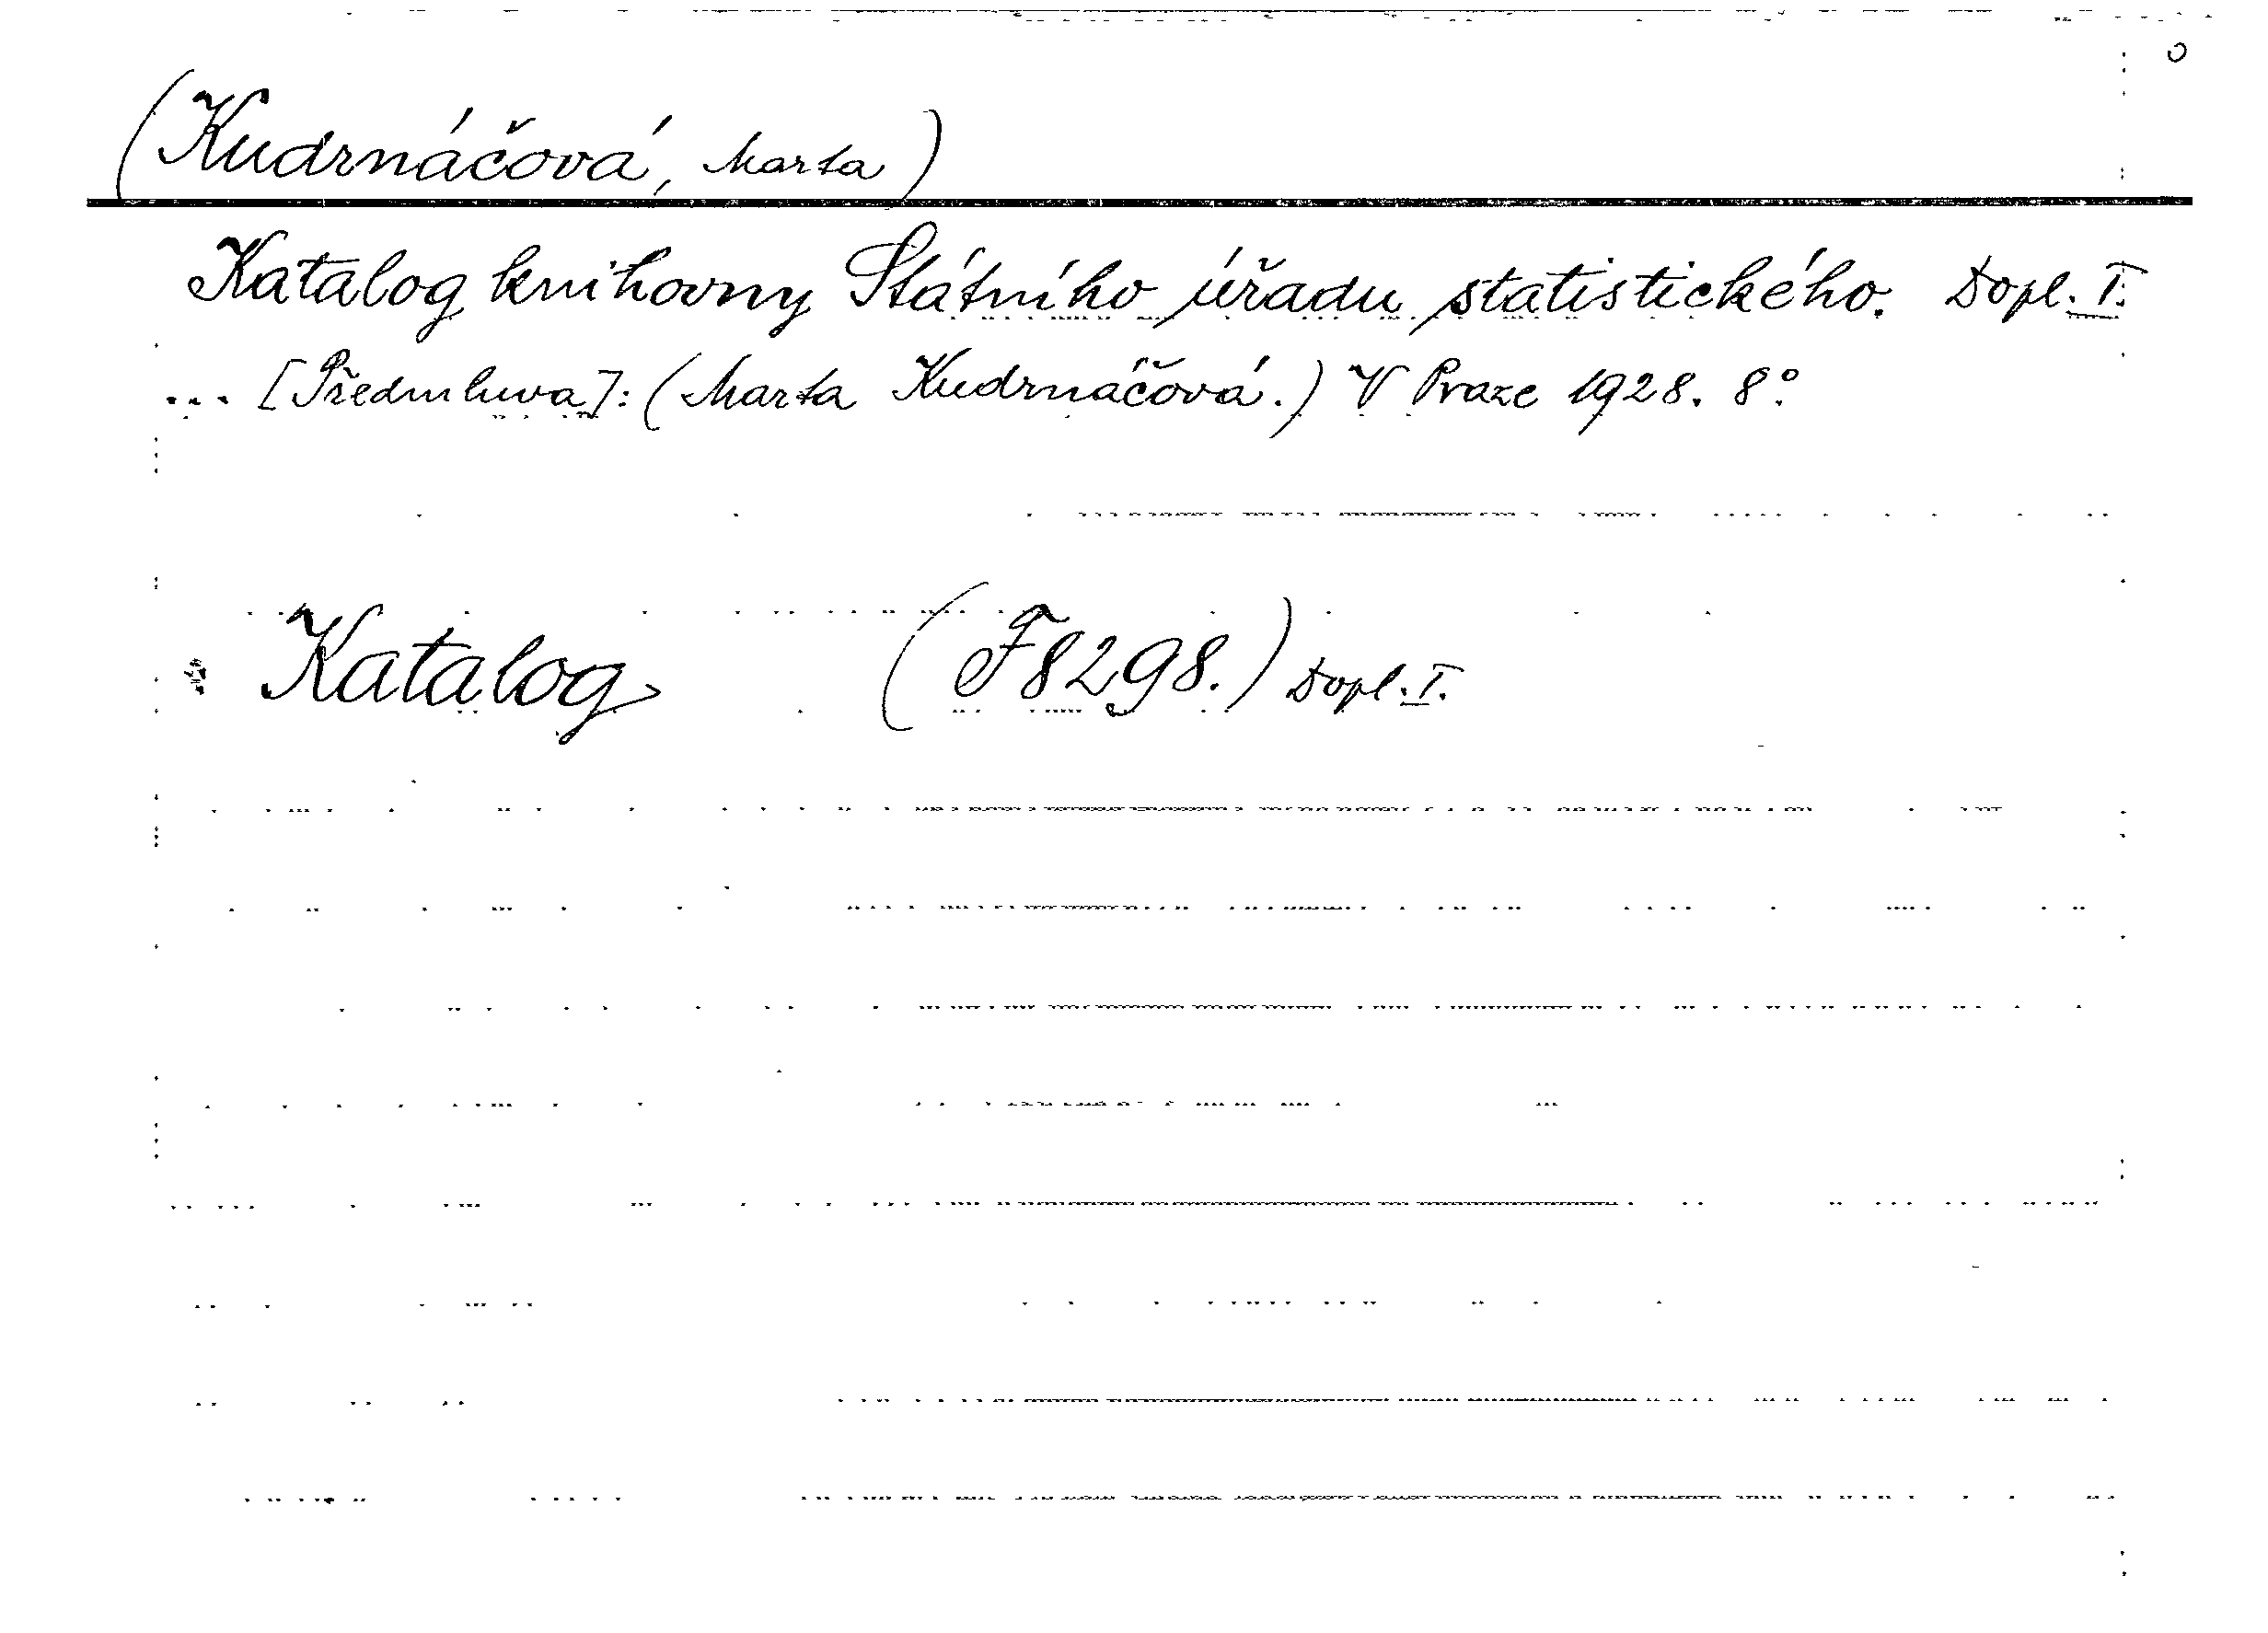 (Kudrnáčová, Marta)
Katalog knihovny Státního úřadu statistického. Dopl. I.
... [Předmluva]: (Marta Kudrnáčová.) V Praze 1928. 8°.
Katalog (F8298.) Dopl. I.